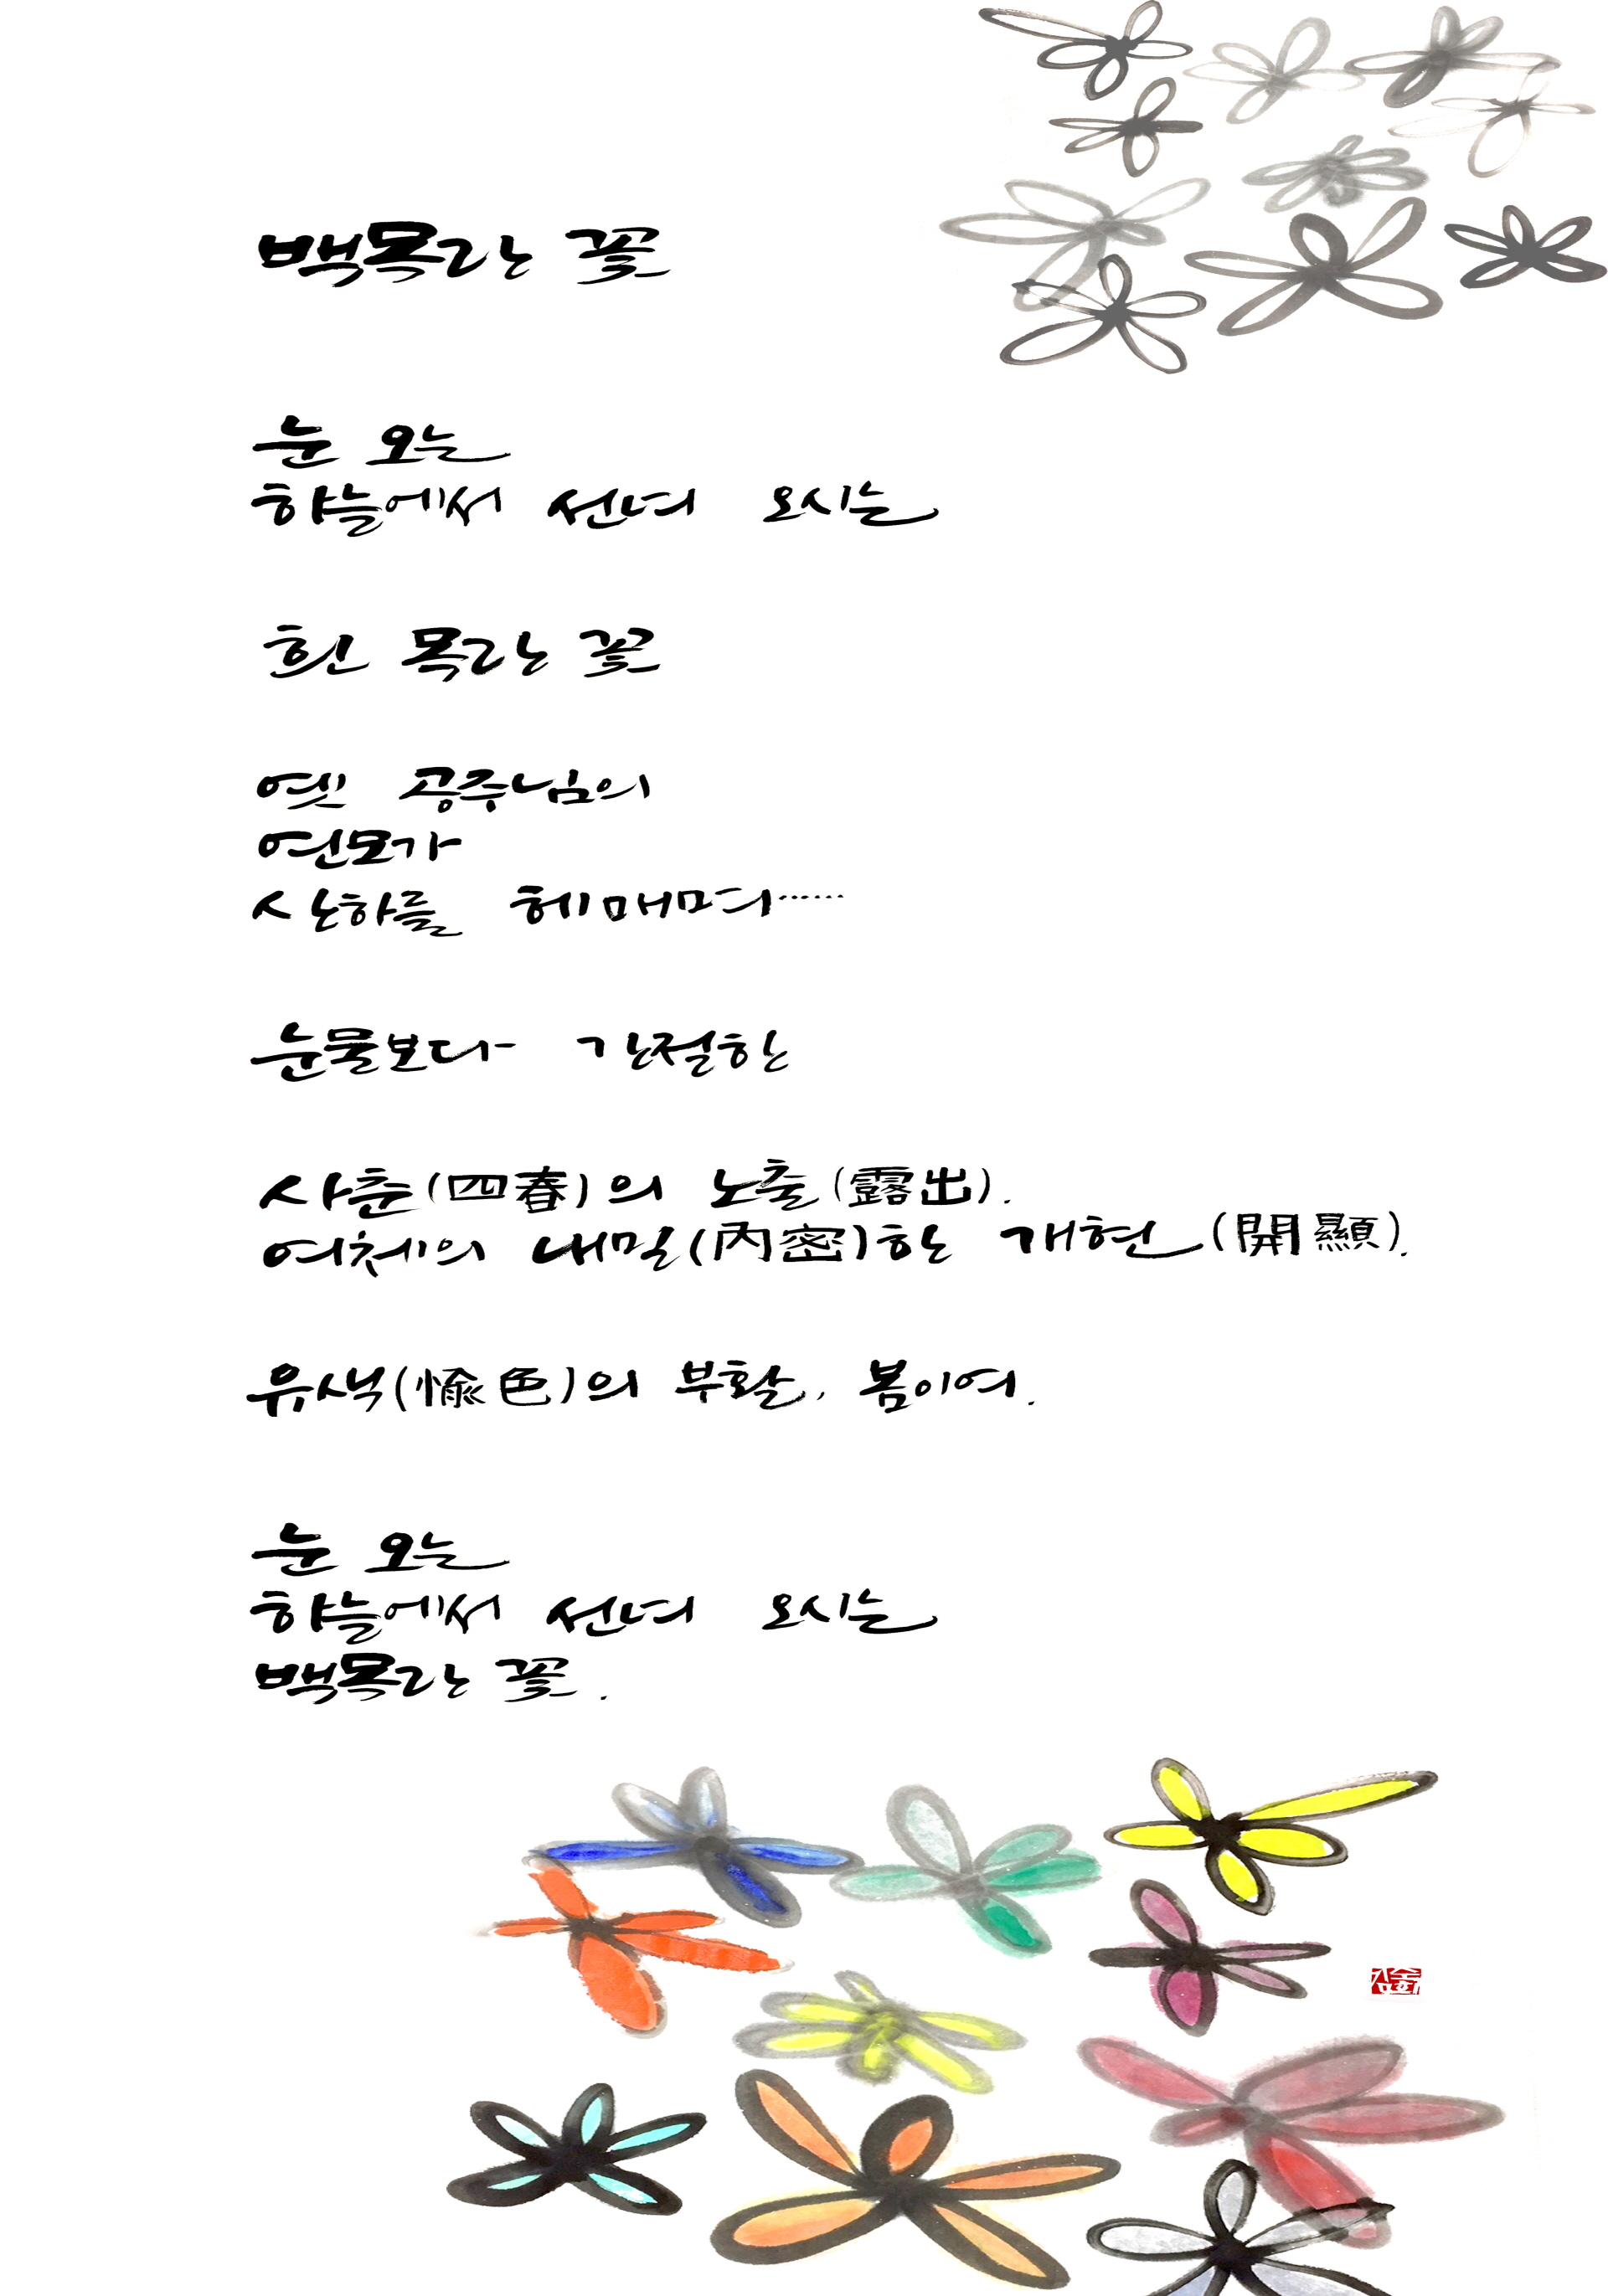 백목란 꽃
눈 오는
하늘에서 선녀 오시는
흰 목란 꽃
옛 공주님의
연모가
산하를 헤매며……
눈물보다 간절한
사춘(四春)의 노출(露出).
여체의 내밀(內密)한 개현(開顯).
유색(愉色)의 부활, 봄이여.
눈 오는
하늘에서 선녀 오시는
백목란 꽃.